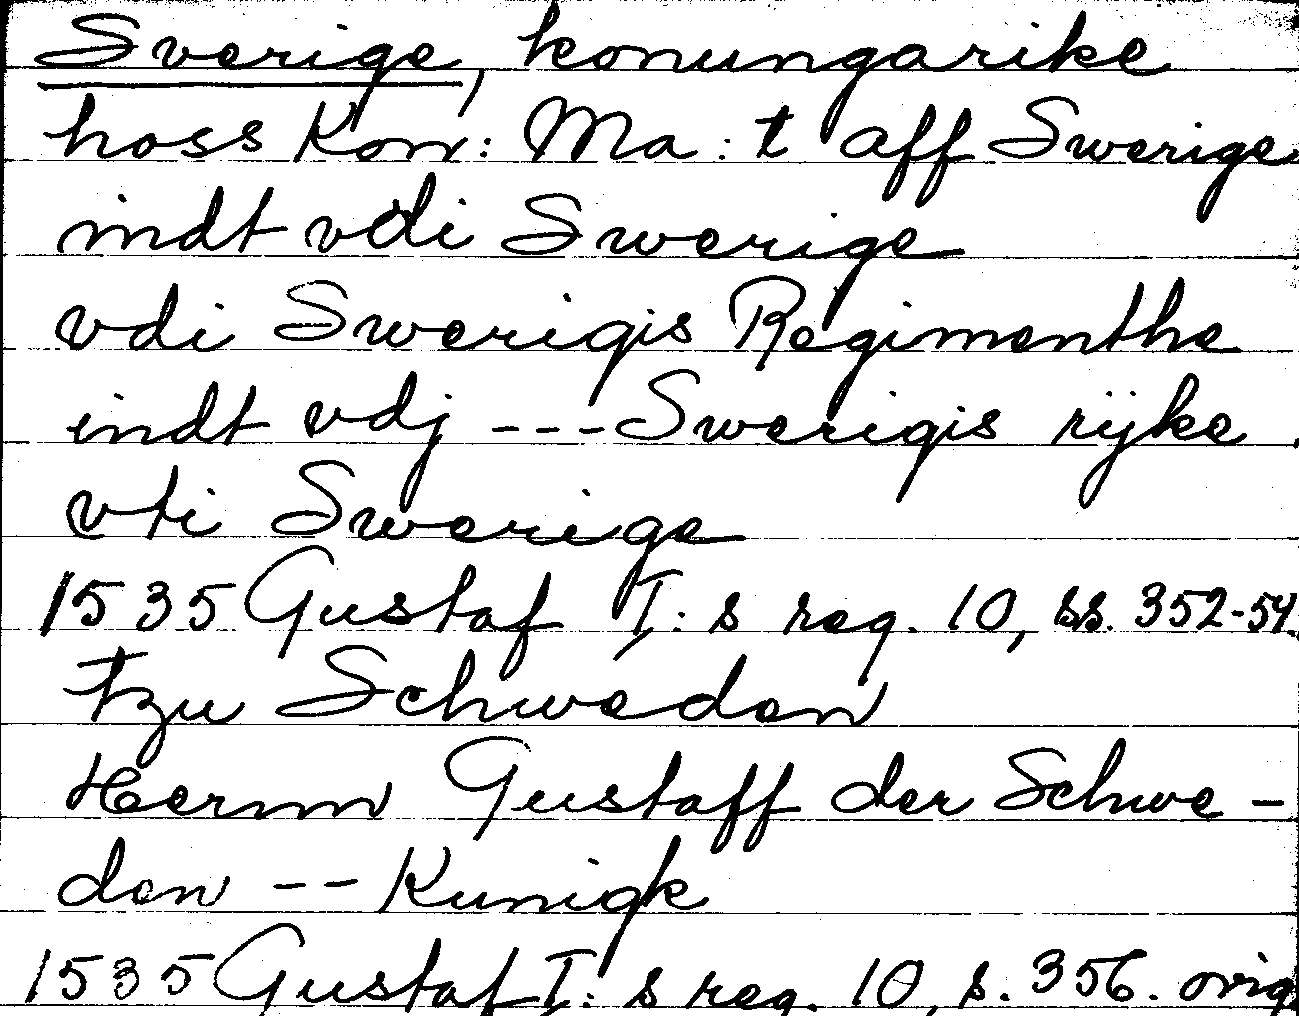 Sverige, konungarike
hoss Kon: Ma:t aff Swerige
indt vdi Swerige
vdi Swerigis Regimenthe
indt vdj --- Swerigis rijke.
vti Swerige
1535 Gustaf I:s reg. 10, ss. 352-54.
tzu Schweden
Hernn Gustaff der Schwe-
den -- Kunigk
1535 Gustaf I:s reg. 10, s. 356. orig.